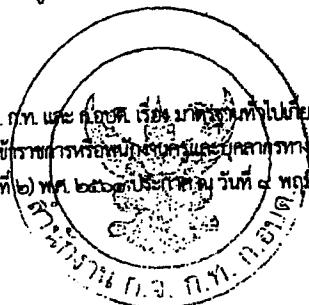 ก.ท. และ ก.อบต. เรื่อง มาตรฐานทั่วไปเกี่ย
ข้าราชการหรือพนักงานครูและบุคลากรทาง
ที่ ๒) พ.ศ. ประกาศ ณ วันที่ ๙ พฤ
สำนักงาน ก.จ. ก.ท. ก.อบต.